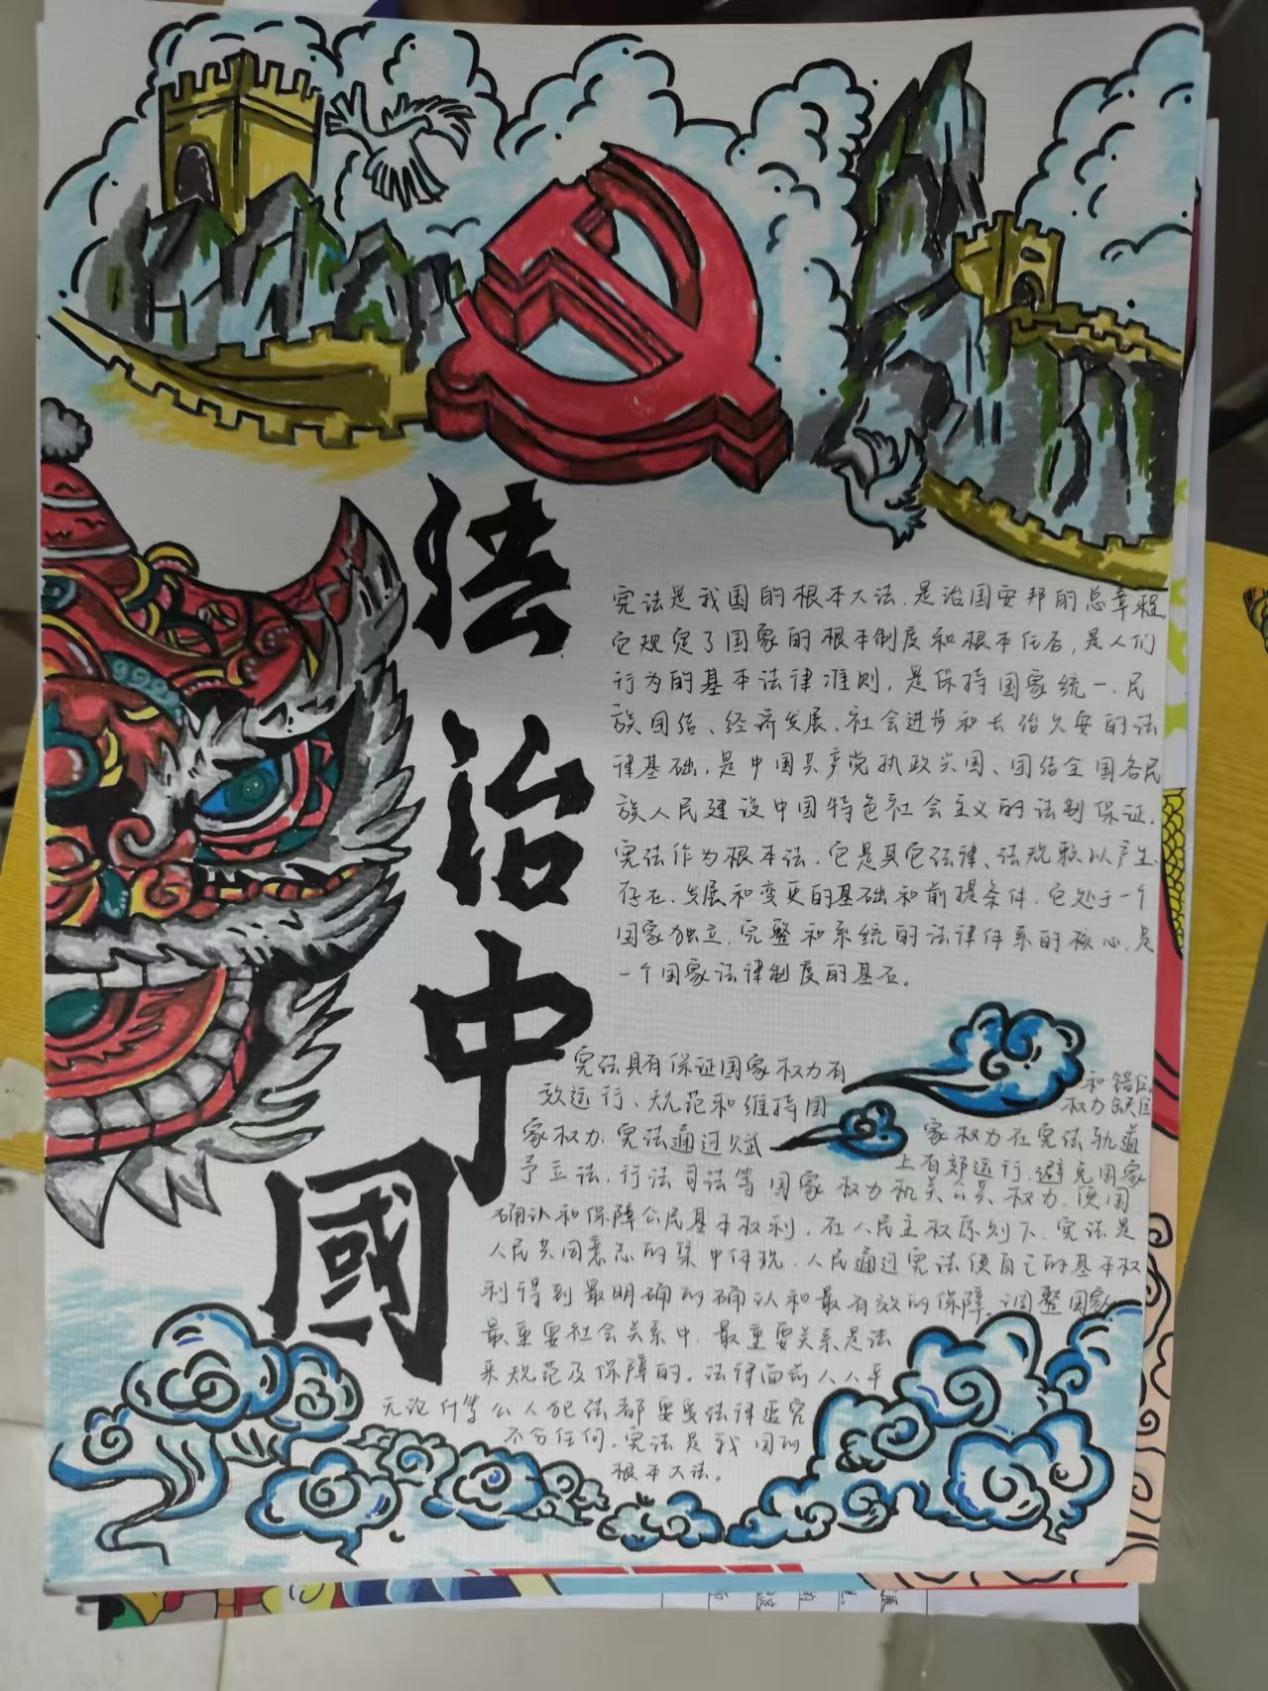 法治中國
宪法是我国的根本大法，是治国安邦的总章程，
它规定了国家的根本制度和根本任务，是人们
行为的基本法律准则，是保持国家统一、民
族团结、经济发展、社会进步和长治久安的法
律基础，是中国共产党执政兴国、团结全国各民
族人民建设中国特色社会主义的法制保证。
宪法作为根本法，它是其它法律、法规赖以产生、
存在、发展和变更的基础和前提条件，它处于一个
国家独立、完整和系统的法律体系的核心，是
一个国家法律制度的基石。
宪法具有保证国家权力有
效运行、规范和维持国
和错位
权力
家权力，宪法通过赋
家权力在宪法轨道
予立法、行法司法等国家权力机关公共权力，使国
上有效运行，避免国家
确认和保障公民基本权利，在人民主权原则下，宪法是
人民共同意志的集中体现，人民通过宪法使自己的基本权
利得到最明确的确认和最有效的保障。调整国家
最重要社会关系中，最重要关系是法
来规范及保障的。法律面前人人平
无论什等公人犯法都要受法律追究
不分任何，宪法是我国的
根本大法。